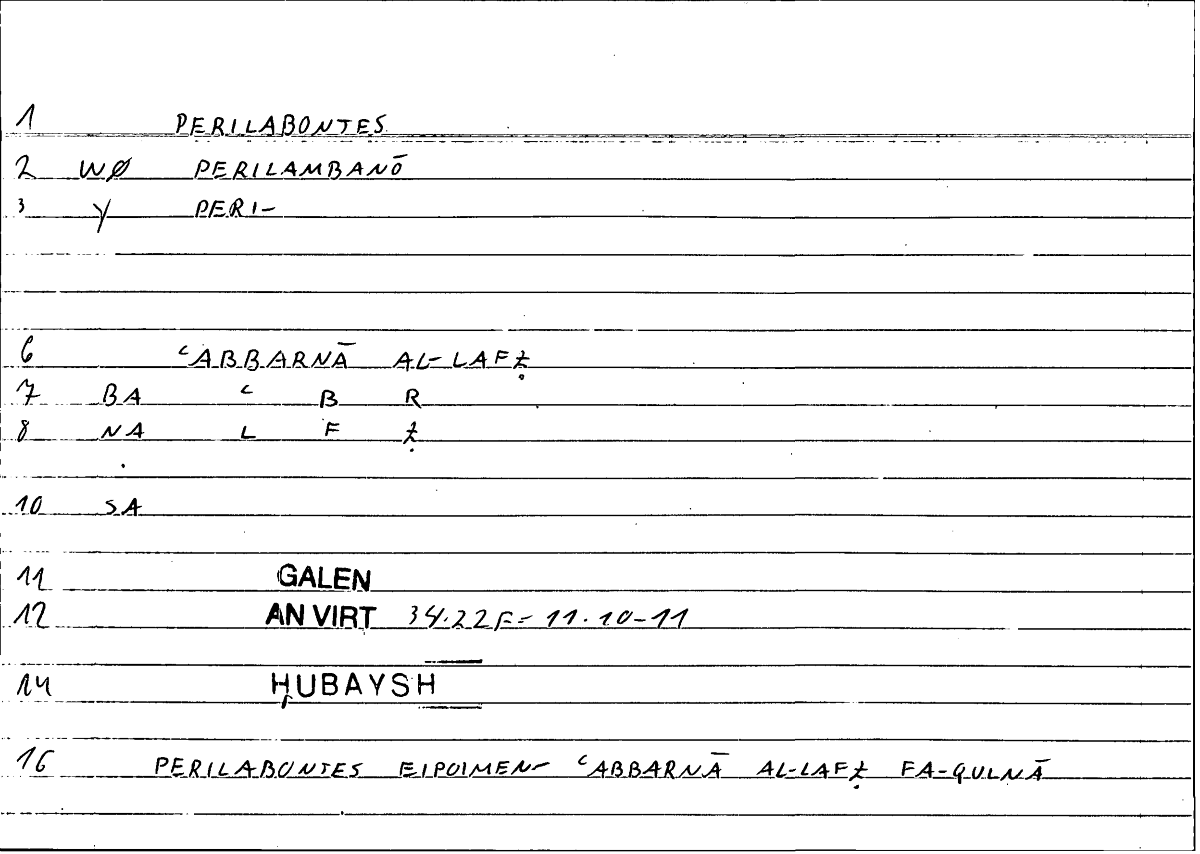 1 PERILABONTES
2 WØ PERILAMBANŌ
3 Y PERI-
6 ʿABBARNĀ AL-LAFẒ
7 BA ʿ B R
8 NA L F Ẓ
10 SA
11 GALEN
12 AN VIRT 34.22F= 11.10-11
14 ḤUBAYSH
16 PERILABONTES EIPOIMEN= ʿABBARNĀ AL-LAFẒ FA-QULNĀ